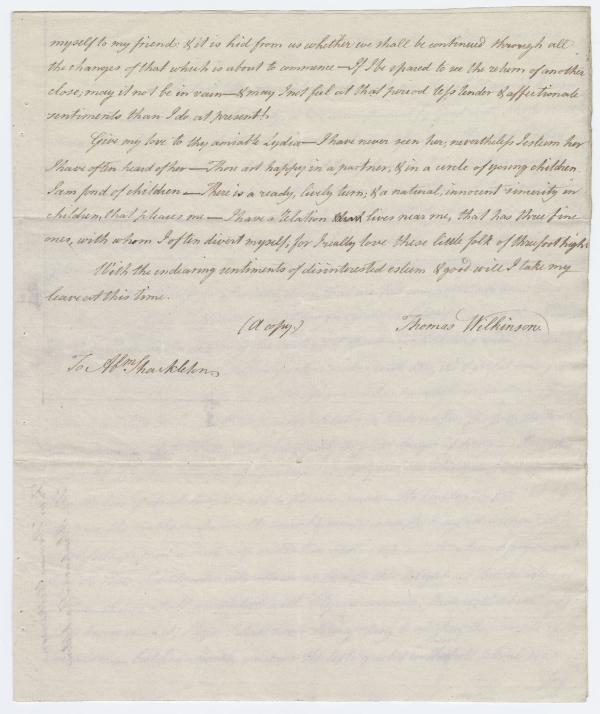 myself to my friend: & it is hid from us whether we shall be continued through all
the changes of that which is about to commence — If I be spared to see the return of another
close, may it not be in vain — & may I not feel at that period less tender & affectionate
sentiments than I do at present!
Give my love to thy amiable Lydia — I have never seen her; nevertheless I esteem her
I have often heard of her — Thou art happy in a partner, & in a circle of young children.
I am fond of children — There is a ready, lively turn; & a natural, innocent sincerity in
children, that pleases me — I have a relation that lives near me, that has three fine
ones, with whom I often divert myself, for I really love these little folk of three foot high.
With the endearing sentiments of disinterested esteem & good will I take my
leave at this time.
(A copy) Thomas Wilkinson
To Abm Shackleton